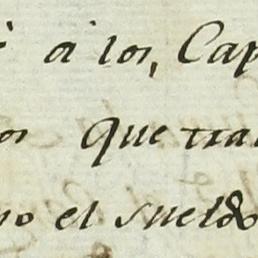 à los, Cap
os Que tra
no el sueldo